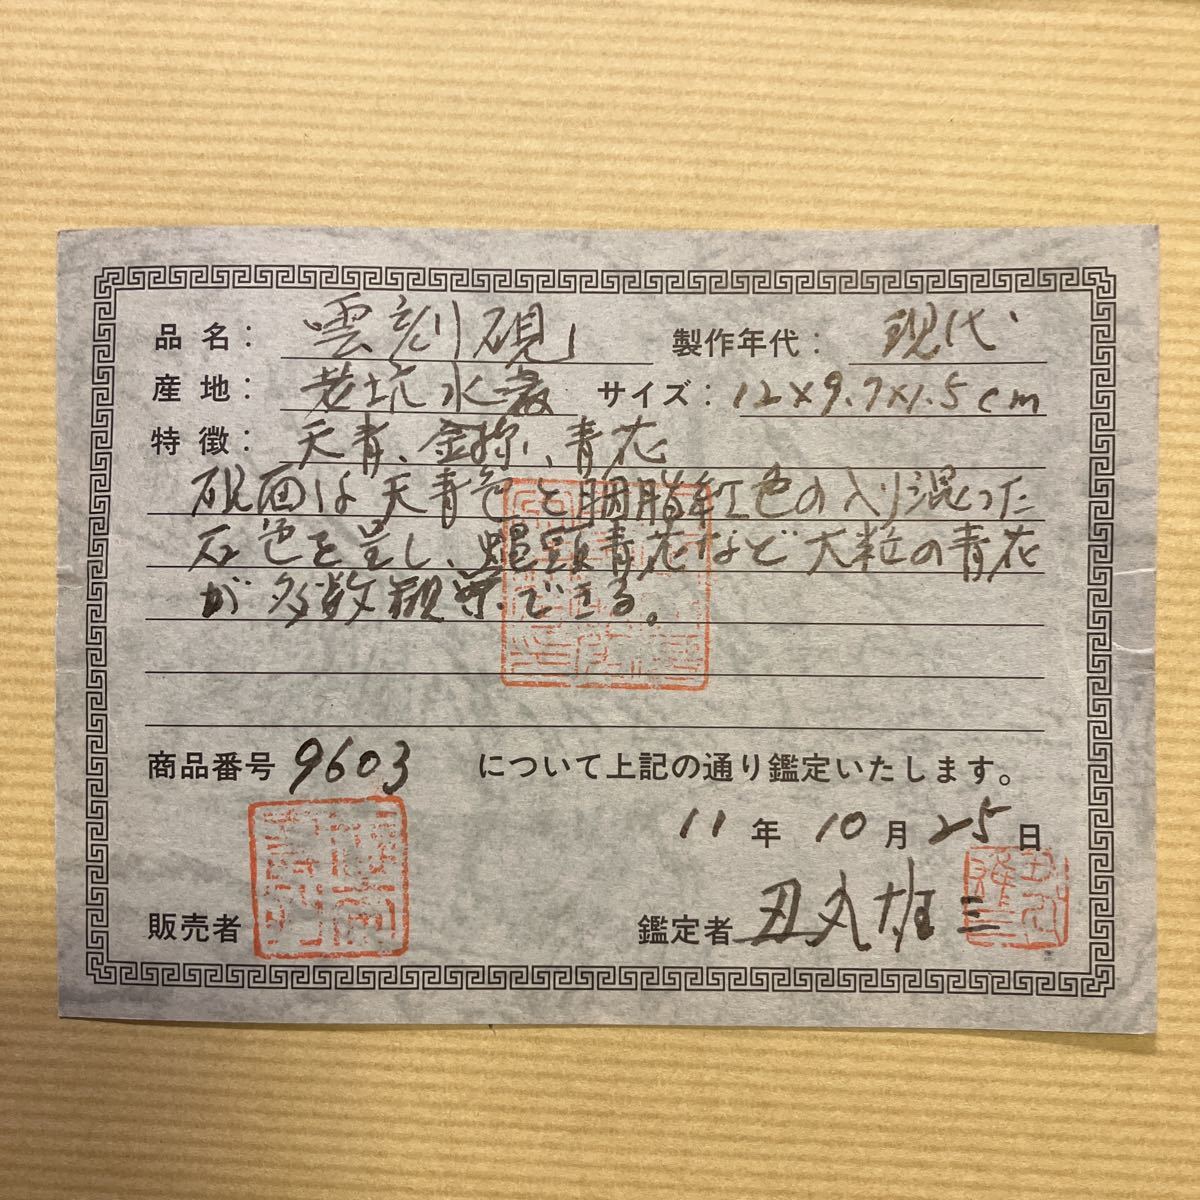 品名: 雲刻硯 製作年代: 現代
産地: 老坑水巌 サイズ: 12×9.7×1.5cm
特徴: 天青、金線、青花
硯面は天青色と胭脂紅色の入り混った
石色を呈し、蠅頭青花など大粒の青花
が多数観察できる。
商品番号 9603 について上記の通り鑑定いたします。
11年10月25日
販売者
鑑定者 雄三